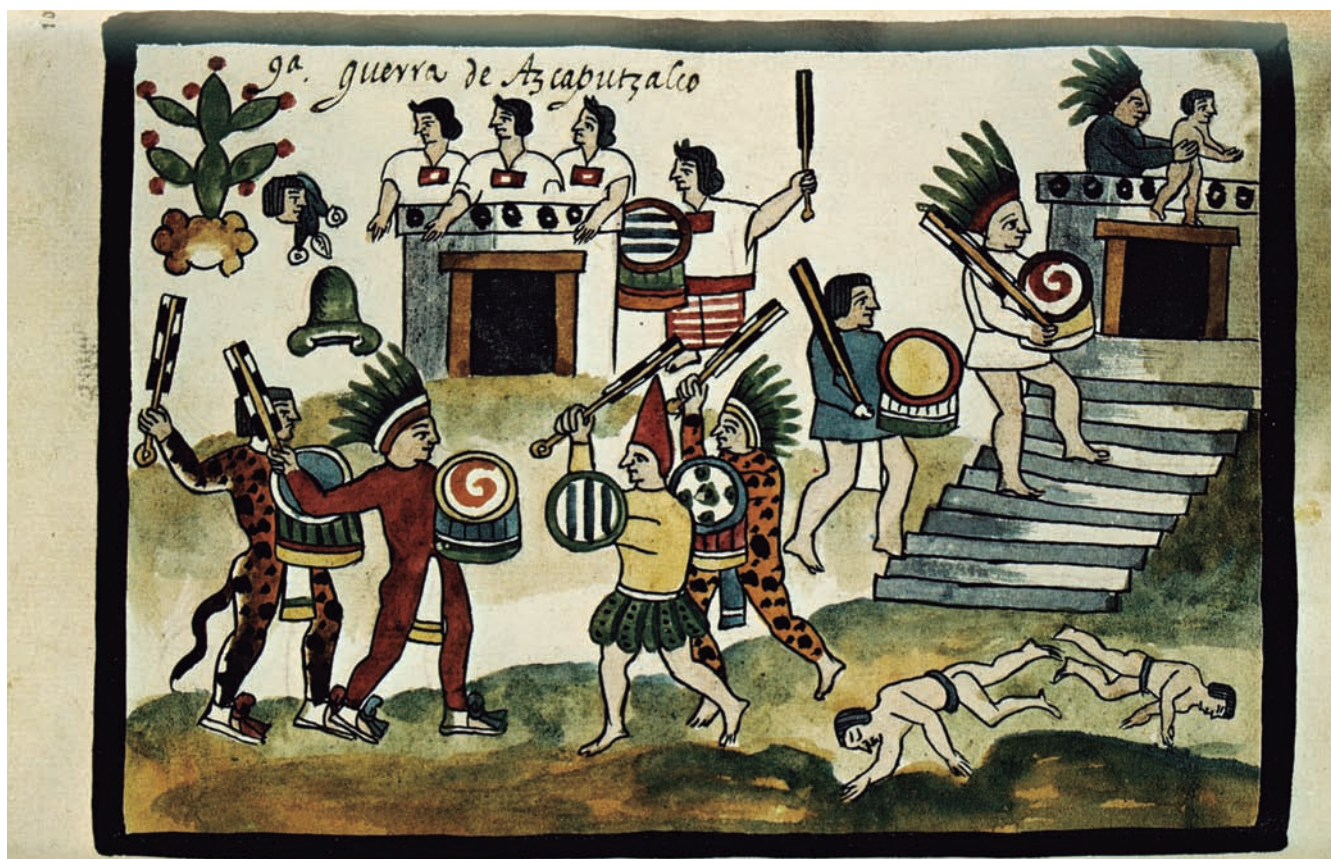 10
9a. guerra de Azcaputzalco